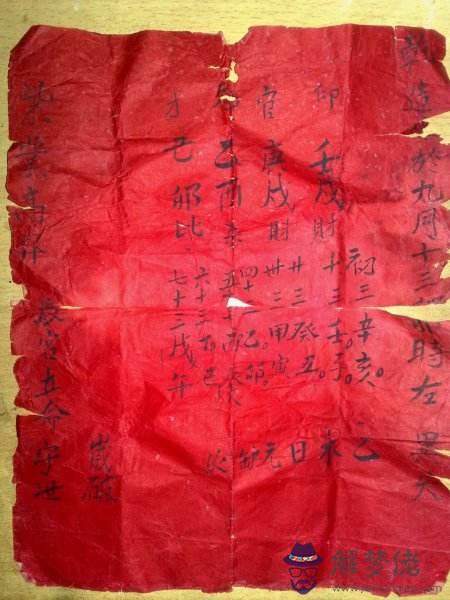 乾造 於九月十三卯時左
印 壬戌財
官 庚戌財
乙酉杀
才 己卯比
初三辛亥。
十三壬子。
廿三癸丑。
卅三甲寅
四十三乙卯。
五十三丙辰
六十三丁巳
七十三戊午
乙未日元缺火
歲破
宫五命守世
解梦佬